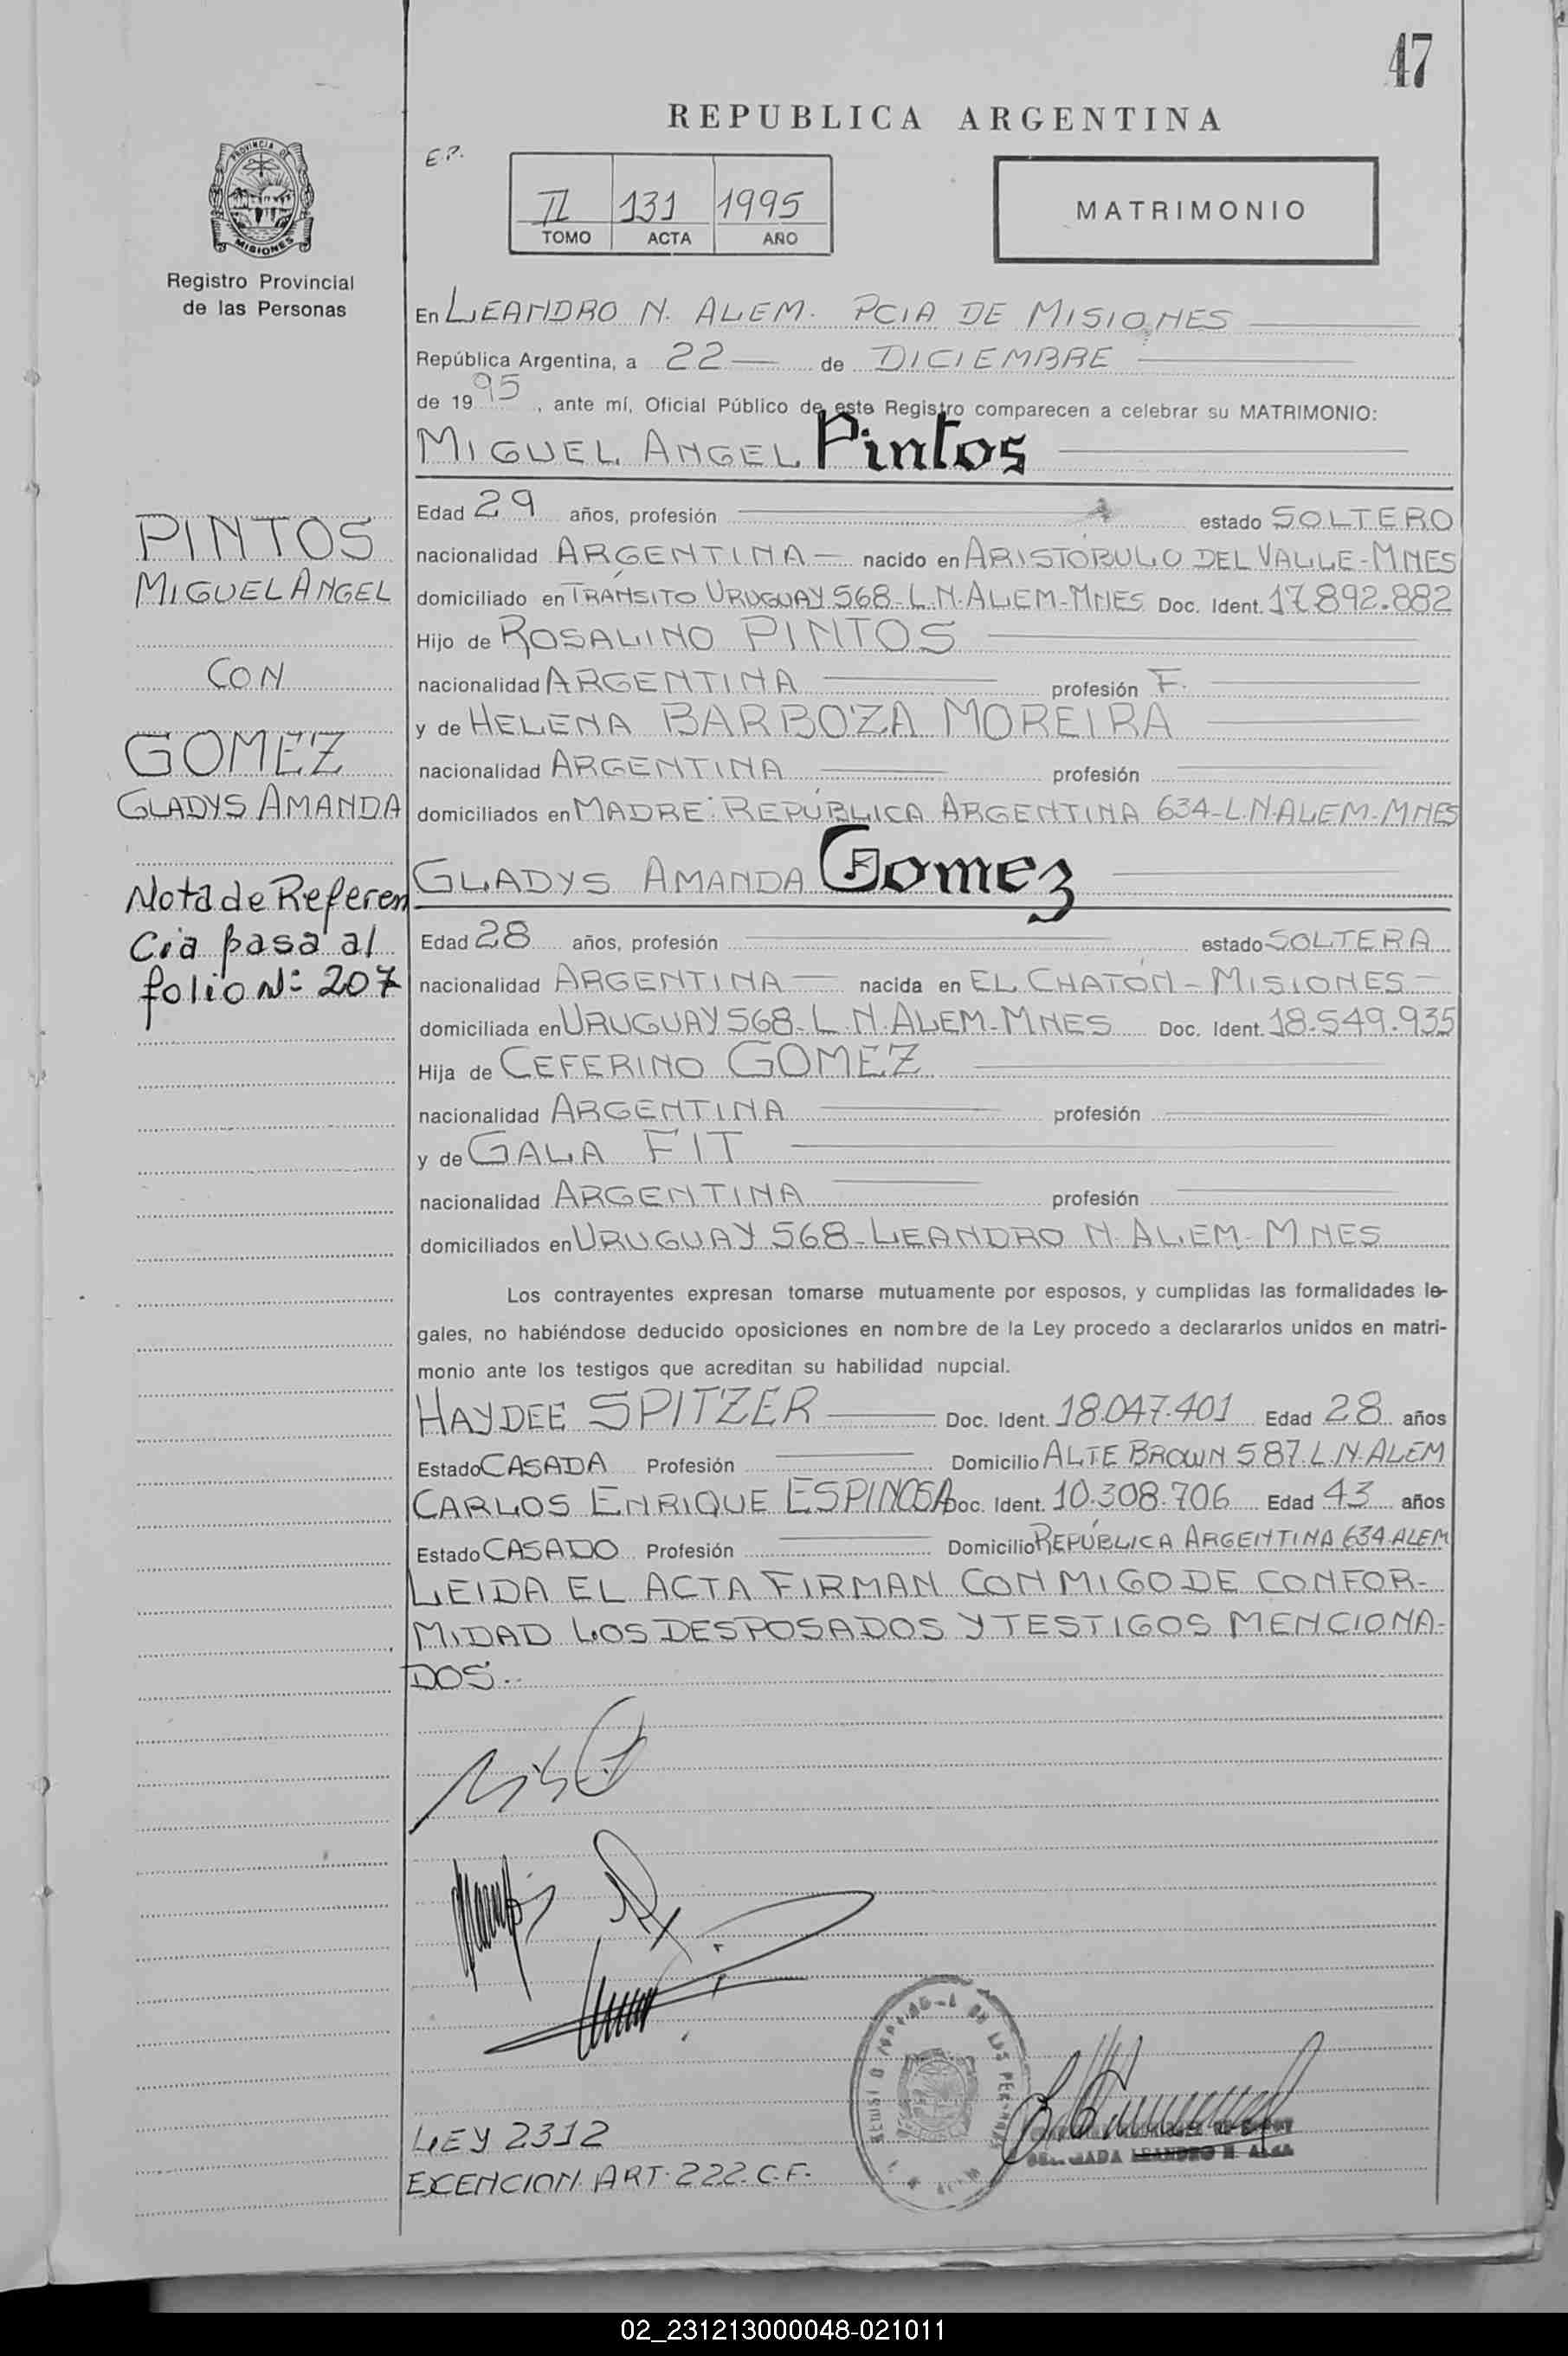 47
REPUBLICA ARGENTINA
PROVINCIA DE
MISIONES
Registro Provincial
de las Personas
E.P.
II 131 1995
TOMO ACTA AÑO
MATRIMONIO
En LEANDRO N. ALEM. PCIA DE MISIONES
República Argentina, a 22 de DICIEMBRE
de 1995, ante mí, Oficial Público de este Registro comparecen a celebrar su MATRIMONIO:
MIGUEL ANGEL Pintos
Edad 29 años, profesión estado SOLTERO
nacionalidad ARGENTINA nacido en ARISTÓBULO DEL VALLE-MNES
domiciliado en TRÁNSITO URUGUAY 568-L.N.ALEM-MNES Doc. Ident. 17.892.882
Hijo de ROSALINO PINTOS
nacionalidad ARGENTINA profesión F.
y de HELENA BARBOZA MOREIRA
nacionalidad ARGENTINA profesión
domiciliados en MADRE: REPÚBLICA ARGENTINA 634-L.N.ALEM-MNES
GLADYS AMANDA Gomez
Edad 28 años, profesión estado SOLTERA
nacionalidad ARGENTINA nacida en EL CHATÓN-MISIONES
domiciliada en URUGUAY 568-L.N.ALEM-MNES Doc. Ident. 18.549.935
Hija de CEFERINO GOMEZ
nacionalidad ARGENTINA profesión
y de GALA FIT
nacionalidad ARGENTINA profesión
domiciliados en URUGUAY 568-LEANDRO N. ALEM-MNES
Los contrayentes expresan tomarse mutuamente por esposos, y cumplidas las formalidades le-
gales, no habiéndose deducido oposiciones en nombre de la Ley procedo a declararlos unidos en matri-
monio ante los testigos que acreditan su habilidad nupcial.
HAYDEE SPITZER Doc. Ident. 18.047.401 Edad 28 años
Estado CASADA Profesión Domicilio ALTE BROWN 587.L.N.ALEM
CARLOS ENRIQUE ESPINOSA Doc. Ident. 10.308.706 Edad 43 años
Estado CASADO Profesión Domicilio REPÚBLICA ARGENTINA 634.ALEM
LEIDA EL ACTA FIRMAN CONMIGO DE CONFOR-
MIDAD LOS DESPOSADOS Y TESTIGOS MENCIONA-
DOS.-
LEY 2312
EXENCION ART. 222. C.F.
LEANDRO N. ALEM
PINTOS
MIGUEL ANGEL
CON
GOMEZ
GLADYS AMANDA
Nota de Referen
cia pasa al
folio Nº 207
02_231213000048-021011